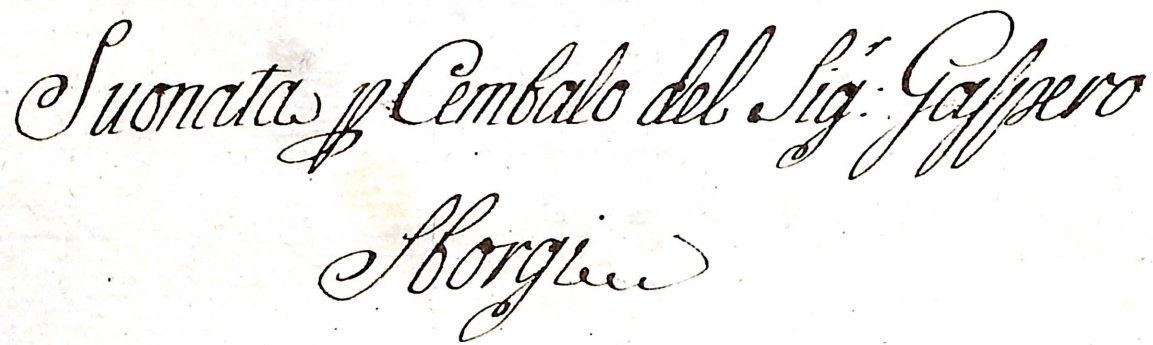 Suonata p Cembalo del Sig.r Gaspero
Sborgi